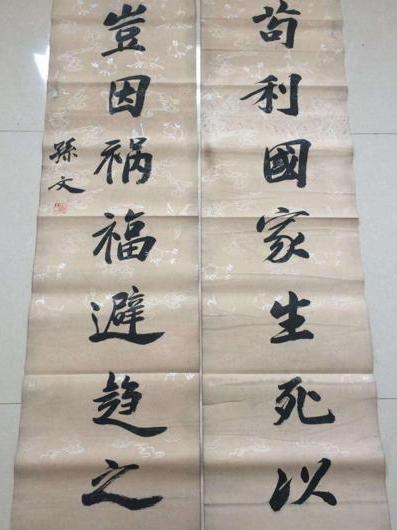 茍利國家生死以
豈因祸福避趋之
孫文